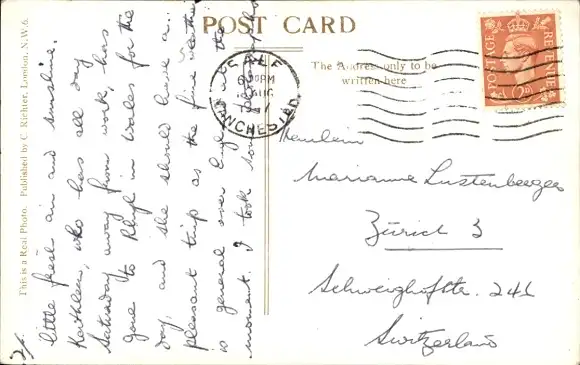 POST CARD
The Address only to be
written here
This is a Real Photo. Published by C. Richter, London, N.W.6.
2/.
little fresh air and sunshine.
Kathleen, who has all day
Saturday away from work, has
gone to Rhyl in Wales for the
day, and she should have a
pleasant trip as the fine weather
is general over England at the
moment. I took some
SALE
PM
AUG
MANCHESTER
POSTAGE
REVENUE
2D
Fräulein
Marianne Lustenberger
Zürich 3
Schweighofstr. 241
Switzerland